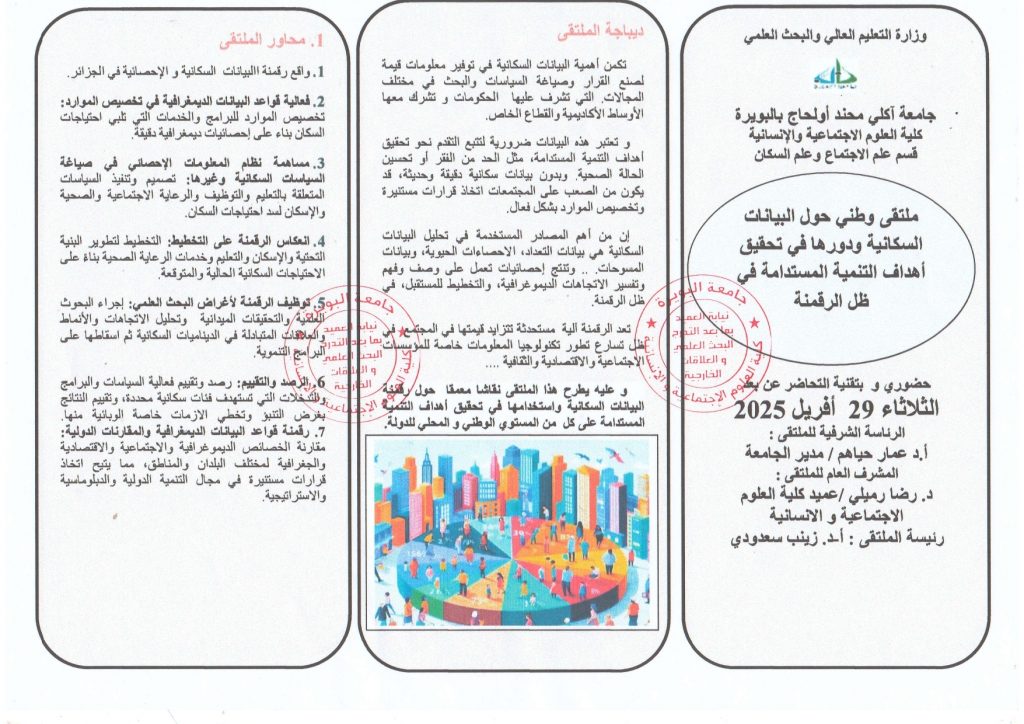 وزارة التعليم العالي والبحث العلمي
جامعة آكلي محند أولحاج بالبويرة
كلية العلوم الاجتماعية والإنسانية
قسم علم الاجتماع وعلم السكان
ملتقى وطني حول البيانات
السكانية ودورها في تحقيق
أهداف التنمية المستدامة في
ظل الرقمنة
حضوري و بتقنية التحاضر عن بعد
الثلاثاء 29 أفريل 2025
الرئاسة الشرفية للملتقى :
أ.د عمار حياهم / مدير الجامعة
المشرف العام للملتقى:
د. رضا رميلي /عميد كلية العلوم
الاجتماعية و الانسانية
رئيسة الملتقى : أ-د. زينب سعدودي
ديباجة الملتقى
تكمن أهمية البيانات السكانية في توفير معلومات قيمة
لصنع القرار وصياغة السياسات والبحث في مختلف
المجالات. التي تشرف عليها الحكومات و تشرك معها
الأوساط الأكاديمية والقطاع الخاص.
و تعتبر هذه البيانات ضرورية لتتبع التقدم نحو تحقيق
أهداف التنمية المستدامة، مثل الحد من الفقر أو تحسين
الحالة الصحية. وبدون بيانات سكانية دقيقة وحديثة، قد
يكون من الصعب على المجتمعات اتخاذ قرارات مستنيرة
وتخصيص الموارد بشكل فعال.
إن من أهم المصادر المستخدمة في تحليل البيانات
السكانية هي بيانات التعداد، الاحصاءات الحيوية، وبيانات
المسوحات. .. وتنتج إحصائيات تعمل على وصف وفهم
وتفسير الاتجاهات الديموغرافية، والتخطيط للمستقبل، في
ظل الرقمنة.
تعد الرقمنة آلية مستحدثة تتزايد قيمتها في المجتمع في
ظل تسارع تطور تكنولوجيا المعلومات خاصة للمؤسسات
الاجتماعية والاقتصادية والثقافية ....
و عليه يطرح هذا الملتقى نقاشا معمقا حول رقمنة
البيانات السكانية واستخدامها في تحقيق أهداف التنمية
المستدامة على كل من المستوي الوطني و المحلي للدولة.
1. محاور الملتقى
1. واقع رقمنة االبيانات السكانية و الإحصائية في الجزائر.
2. فعالية قواعد البيانات الديمغرافية في تخصيص الموارد:
تخصيص الموارد للبرامج والخدمات التي تلبي احتياجات
السكان بناء على إحصائيات ديمغرافية دقيقة.
3. مساهمة نظام المعلومات الإحصائي في صياغة
السياسات السكانية وغيرها: تصميم وتنفيذ السياسات
المتعلقة بالتعليم والتوظيف والرعاية الاجتماعية والصحية
والإسكان لسد احتياجات السكان.
4. انعكاس الرقمنة على التخطيط: التخطيط لتطوير البنية
التحتية والإسكان والتعليم وخدمات الرعاية الصحية بناءً على
الاحتياجات السكانية الحالية والمتوقعة.
5. توظيف الرقمنة لأغراض البحث العلمي: إجراء البحوث
العلمية والتحقيقات الميدانية وتحليل الاتجاهات والأنماط
والعلاقات المتبادلة في الديناميات السكانية ثم اسقاطها على
البرامج التنموية.
6. الرصد والتقييم: رصد وتقييم فعالية السياسات والبرامج
والتدخلات التي تستهدف فئات سكانية محددة، وتقييم النتائج
بغرض التنبؤ وتخطي الازمات خاصة الوبائية منها.
7. رقمنة قواعد البيانات الديمغرافية والمقارنات الدولية:
مقارنة الخصائص الديموغرافية والاجتماعية والاقتصادية
والجغرافية لمختلف البلدان والمناطق، مما يتيح اتخاذ
قرارات مستنيرة في مجال التنمية الدولية والدبلوماسية
والاستراتيجية.
جامعة البويرة
كلية العلوم الاجتماعية و الإنسانية
نيابة العميد
بما بعد التدرج
البحث العلمي
و العلاقات
الخارجية
جامعة البويرة
كلية العلوم الاجتماعية و الإنسانية
نيابة العميد
بما بعد التدرج
البحث العلمي
و العلاقات
الخارجية